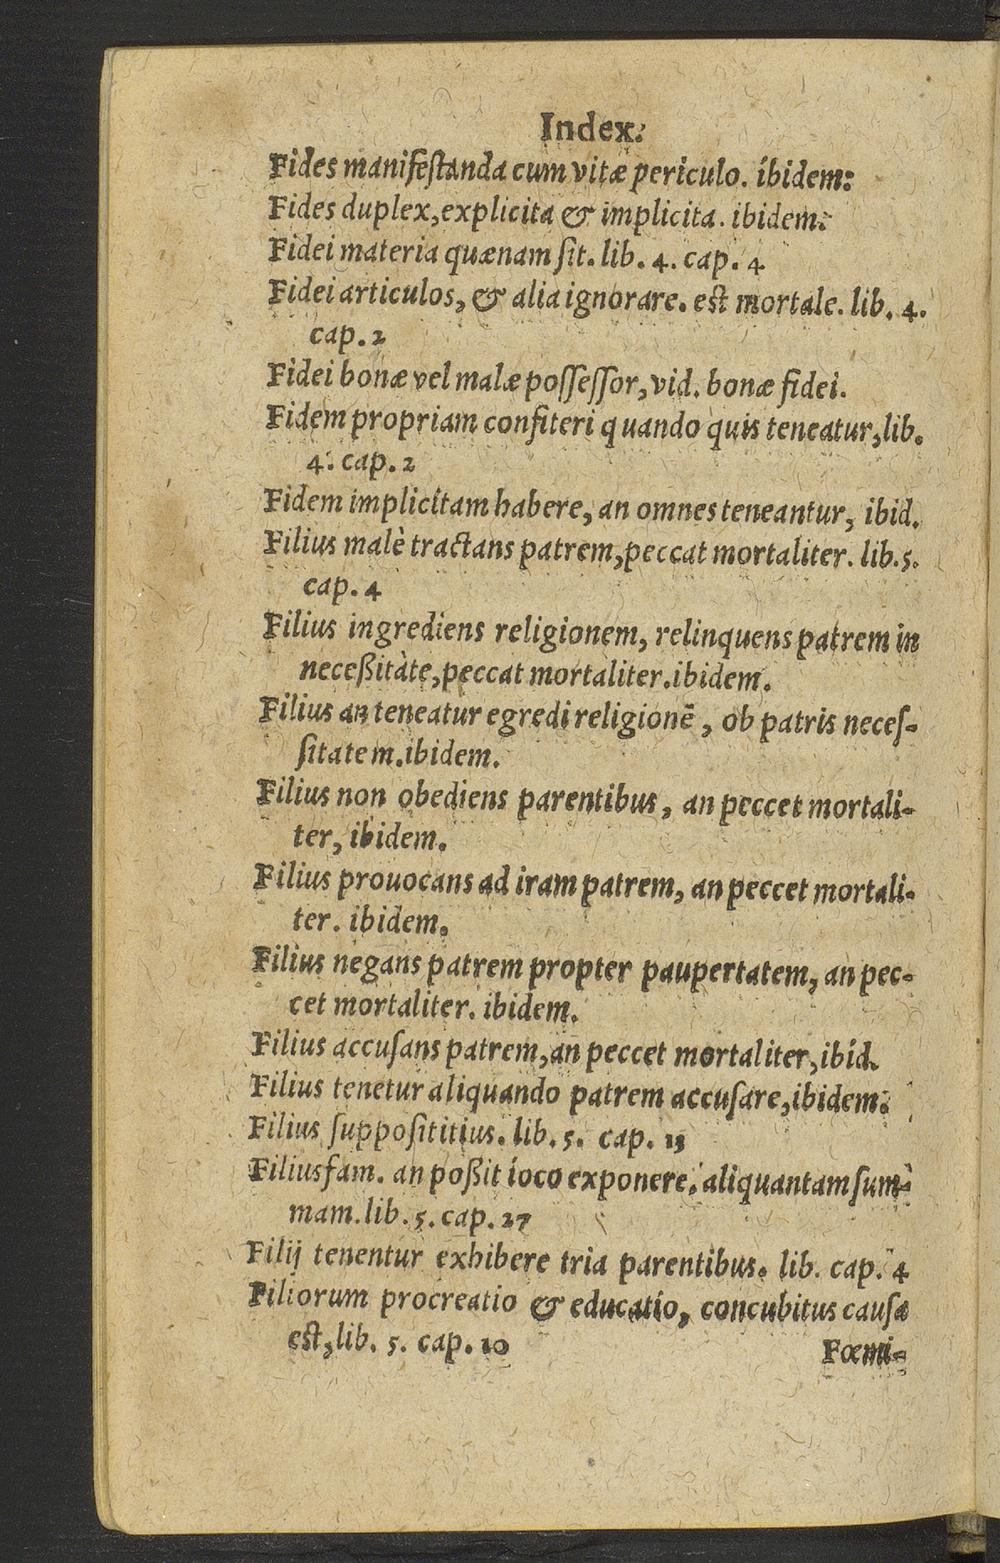 Index.
Fides manifeſtanda cum vitæ periculo. ibidem:
Fides duplex,explicita & implicita. ibidem.
Fidei materia quænam ſit. lib. 4. cap. 4
Fidei articulos, & alia ignorare. est mortale. lib. 4.
cap. 2
Fidei bonæ vel malæ poſſeſſor, vid. bonæ fidei.
Fidem propriam confiteri quando quis teneatur, lib.
4. cap. 2
Fidem implicitam habere, an omnes teneantur, ibid.
Filius malè tractans patrem, peccat mortaliter. lib. 5.
cap. 4
Filius ingrediens religionem, relinquens patrem in
neceßitàte, peccat mortaliter. ibidem.
Filius an teneatur egredi religionē, ob patris neceſ-
ſitatem. ibidem.
Filius non obediens parentibus, an peccet mortali-
ter, ibidem.
Filius prouocans ad iram patrem, an peccet mortali-
ter. ibidem.
Filius negans patrem propter paupertatem, an pec-
cet mortaliter. ibidem.
Filius accuſans patrem, an peccet mortaliter, ibid.
Filius tenetur aliquando patrem accuſare, ibidem.
Filius ſuppoſititius. lib. 5. cap. 13
Filiusfam. an poßit ioco exponere. aliquantam ſum-
mam. lib. 5. cap. 27
Filij tenentur exhibere tria parentibus. lib. cap. 4
Filiorum procreatio & educatio, concubitus cauſa
est, lib. 5. cap. 10
Fœmi-